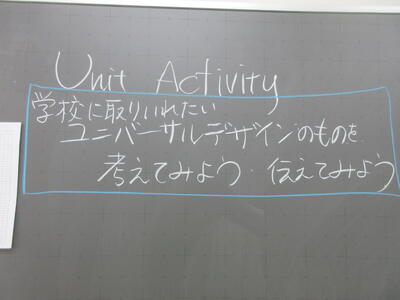 Unit Activity
学校に取りいれたい
ユニバーサルデザインのものを
考えてみよう・伝えてみよう